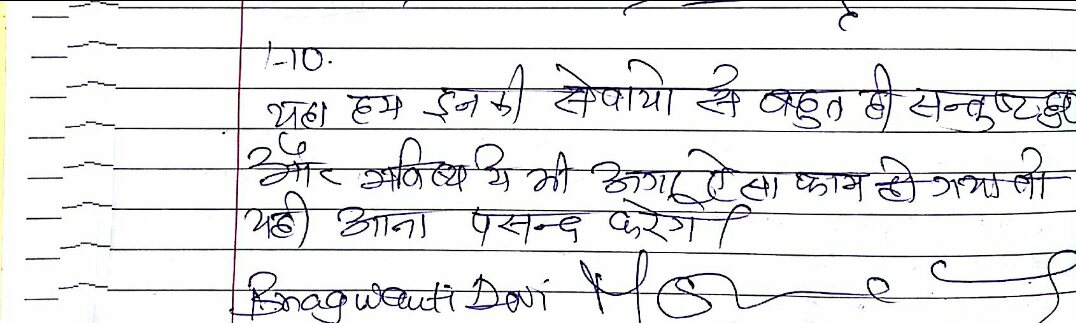 1-10.
यहा हम इनकी सेवायो से बहुत ही सन्तुष्ट हुए
और भविष्य मे भी अगर ऐसा काम हो गया तो
यही आना पसन्द करेगे।
Bhagwanti Devi